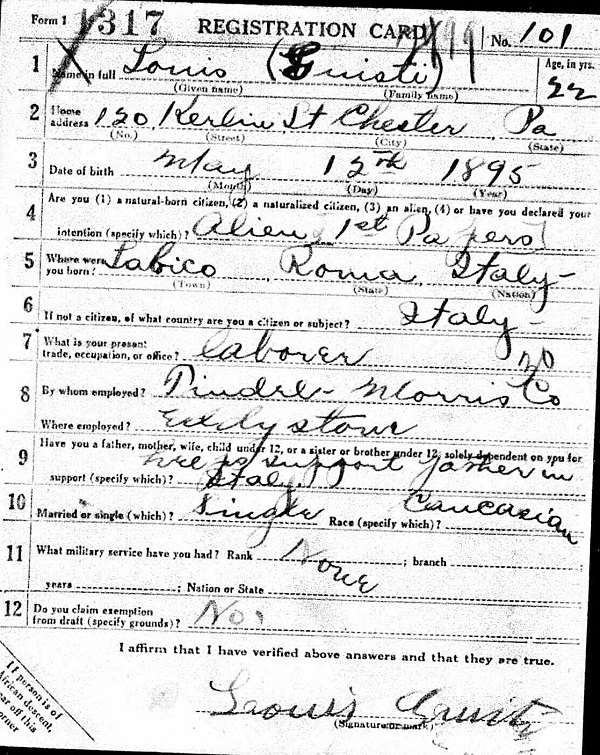 Form 1 1317 REGISTRATION CARD No. 101
1 Name in full Louis (Guisti) Age, in yrs.
(Given name) (Family name) 22
2 Home address 120 Kerlin St Chester Pa
(No.) (Street) (City) (State)
3 Date of birth May 12th 1895
(Month) (Day) (Year)
4 Are you (1) a natural-born citizen, (2) a naturalized citizen, (3) an alien, (4) or have you declared your
intention (specify which)? Alien, 1st Papers
5 Where were you born? Labico Roma, Italy-
(Town) (State) (Nation)
6 If not a citizen, of what country are you a citizen or subject? Italy-
7 What is your present trade, occupation, or office? laborer 20
8 By whom employed? Morris Co
Where employed? Eddystone
9 Have you a father, mother, wife, child under 12, or a sister or brother under 12, solely dependent on you for
support (specify which)? support father in Italy
10 Married or single (which)? Single Race (specify which)? Caucasian
11 What military service have you had? Rank None ; branch ;
years ; Nation or State
12 Do you claim exemption from draft (specify grounds)? No.
I affirm that I have verified above answers and that they are true.
Louis
(Signature or mark)
If person is of
African descent,
tear off this
corner